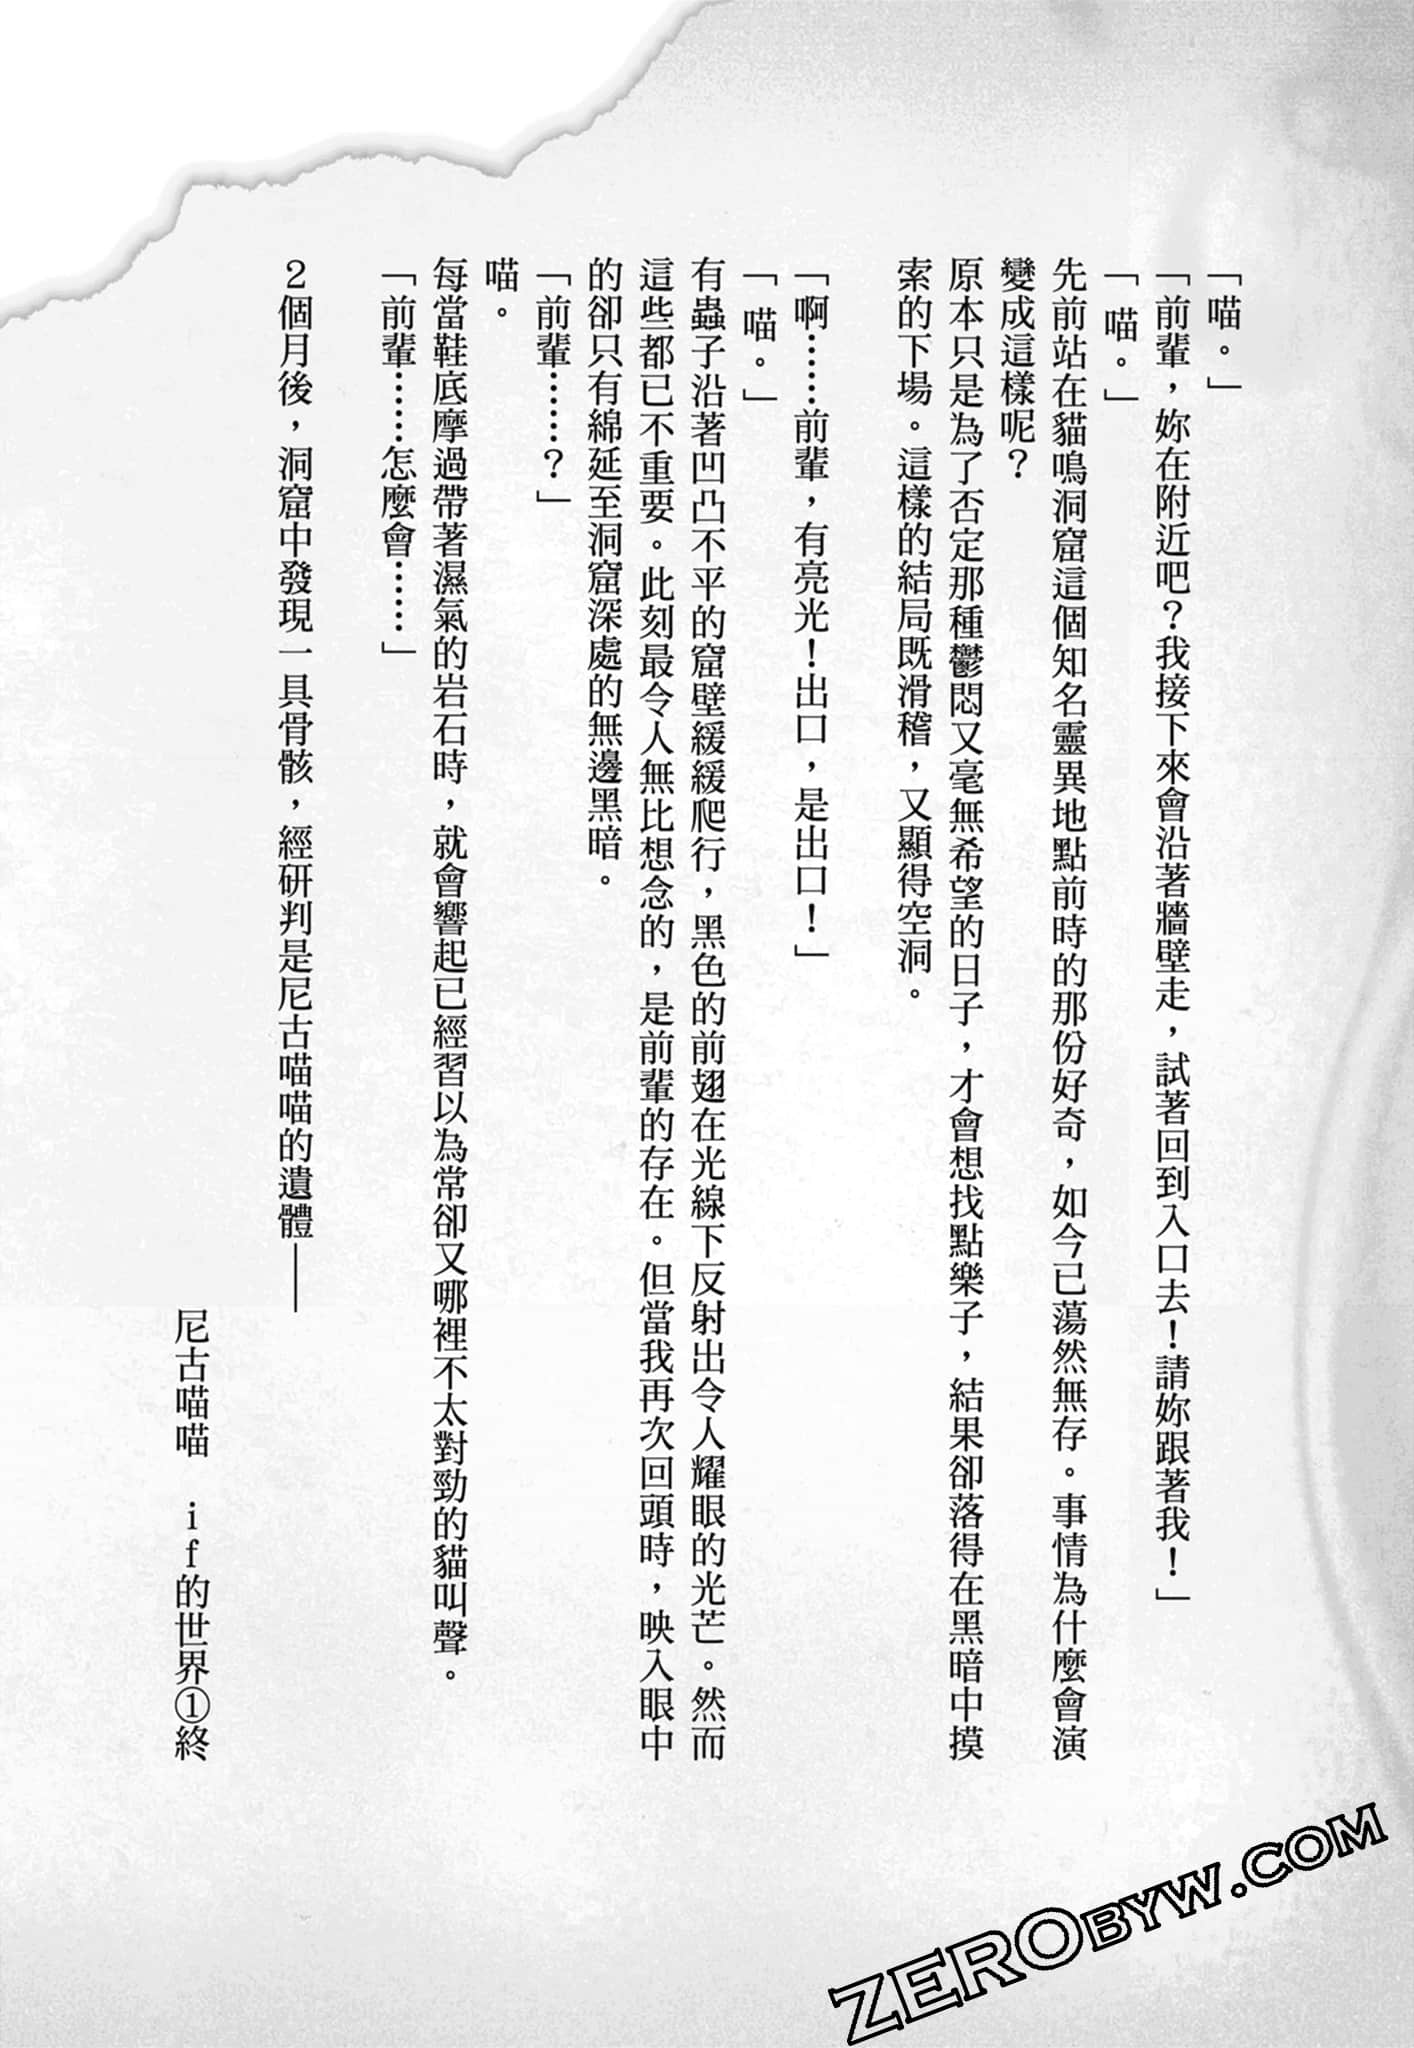 「喵。」
「前輩，妳在附近吧？我接下來會沿著牆壁走，試著回到入口去！請妳跟著我！」
「喵。」
先前站在貓鳴洞窟這個知名靈異地點前時的那份好奇，如今已蕩然無存。事情為什麼會演
變成這樣呢？
原本只是為了否定那種鬱悶又毫無希望的日子，才會想找點樂子，結果卻落得在黑暗中摸
索的下場。這樣的結局既滑稽，又顯得空洞。
「啊……前輩，有亮光！出口，是出口！」
「喵。」
有蟲子沿著凹凸不平的窟壁緩緩爬行，黑色的前翅在光線下反射出令人耀眼的光芒。然而
這些都已不重要。此刻最令人無比想念的，是前輩的存在。但當我再次回頭時，映入眼中
的卻只有綿延至洞窟深處的無邊黑暗。
「前輩……？」
喵。
每當鞋底摩過帶著濕氣的岩石時，就會響起已經習以為常卻又哪裡不太對勁的貓叫聲。
「前輩……怎麼會……」
2個月後，洞窟中發現一具骨骸，經研判是尼古喵喵的遺體——
尼古喵喵　if的世界①終
ZEROBYW.COM